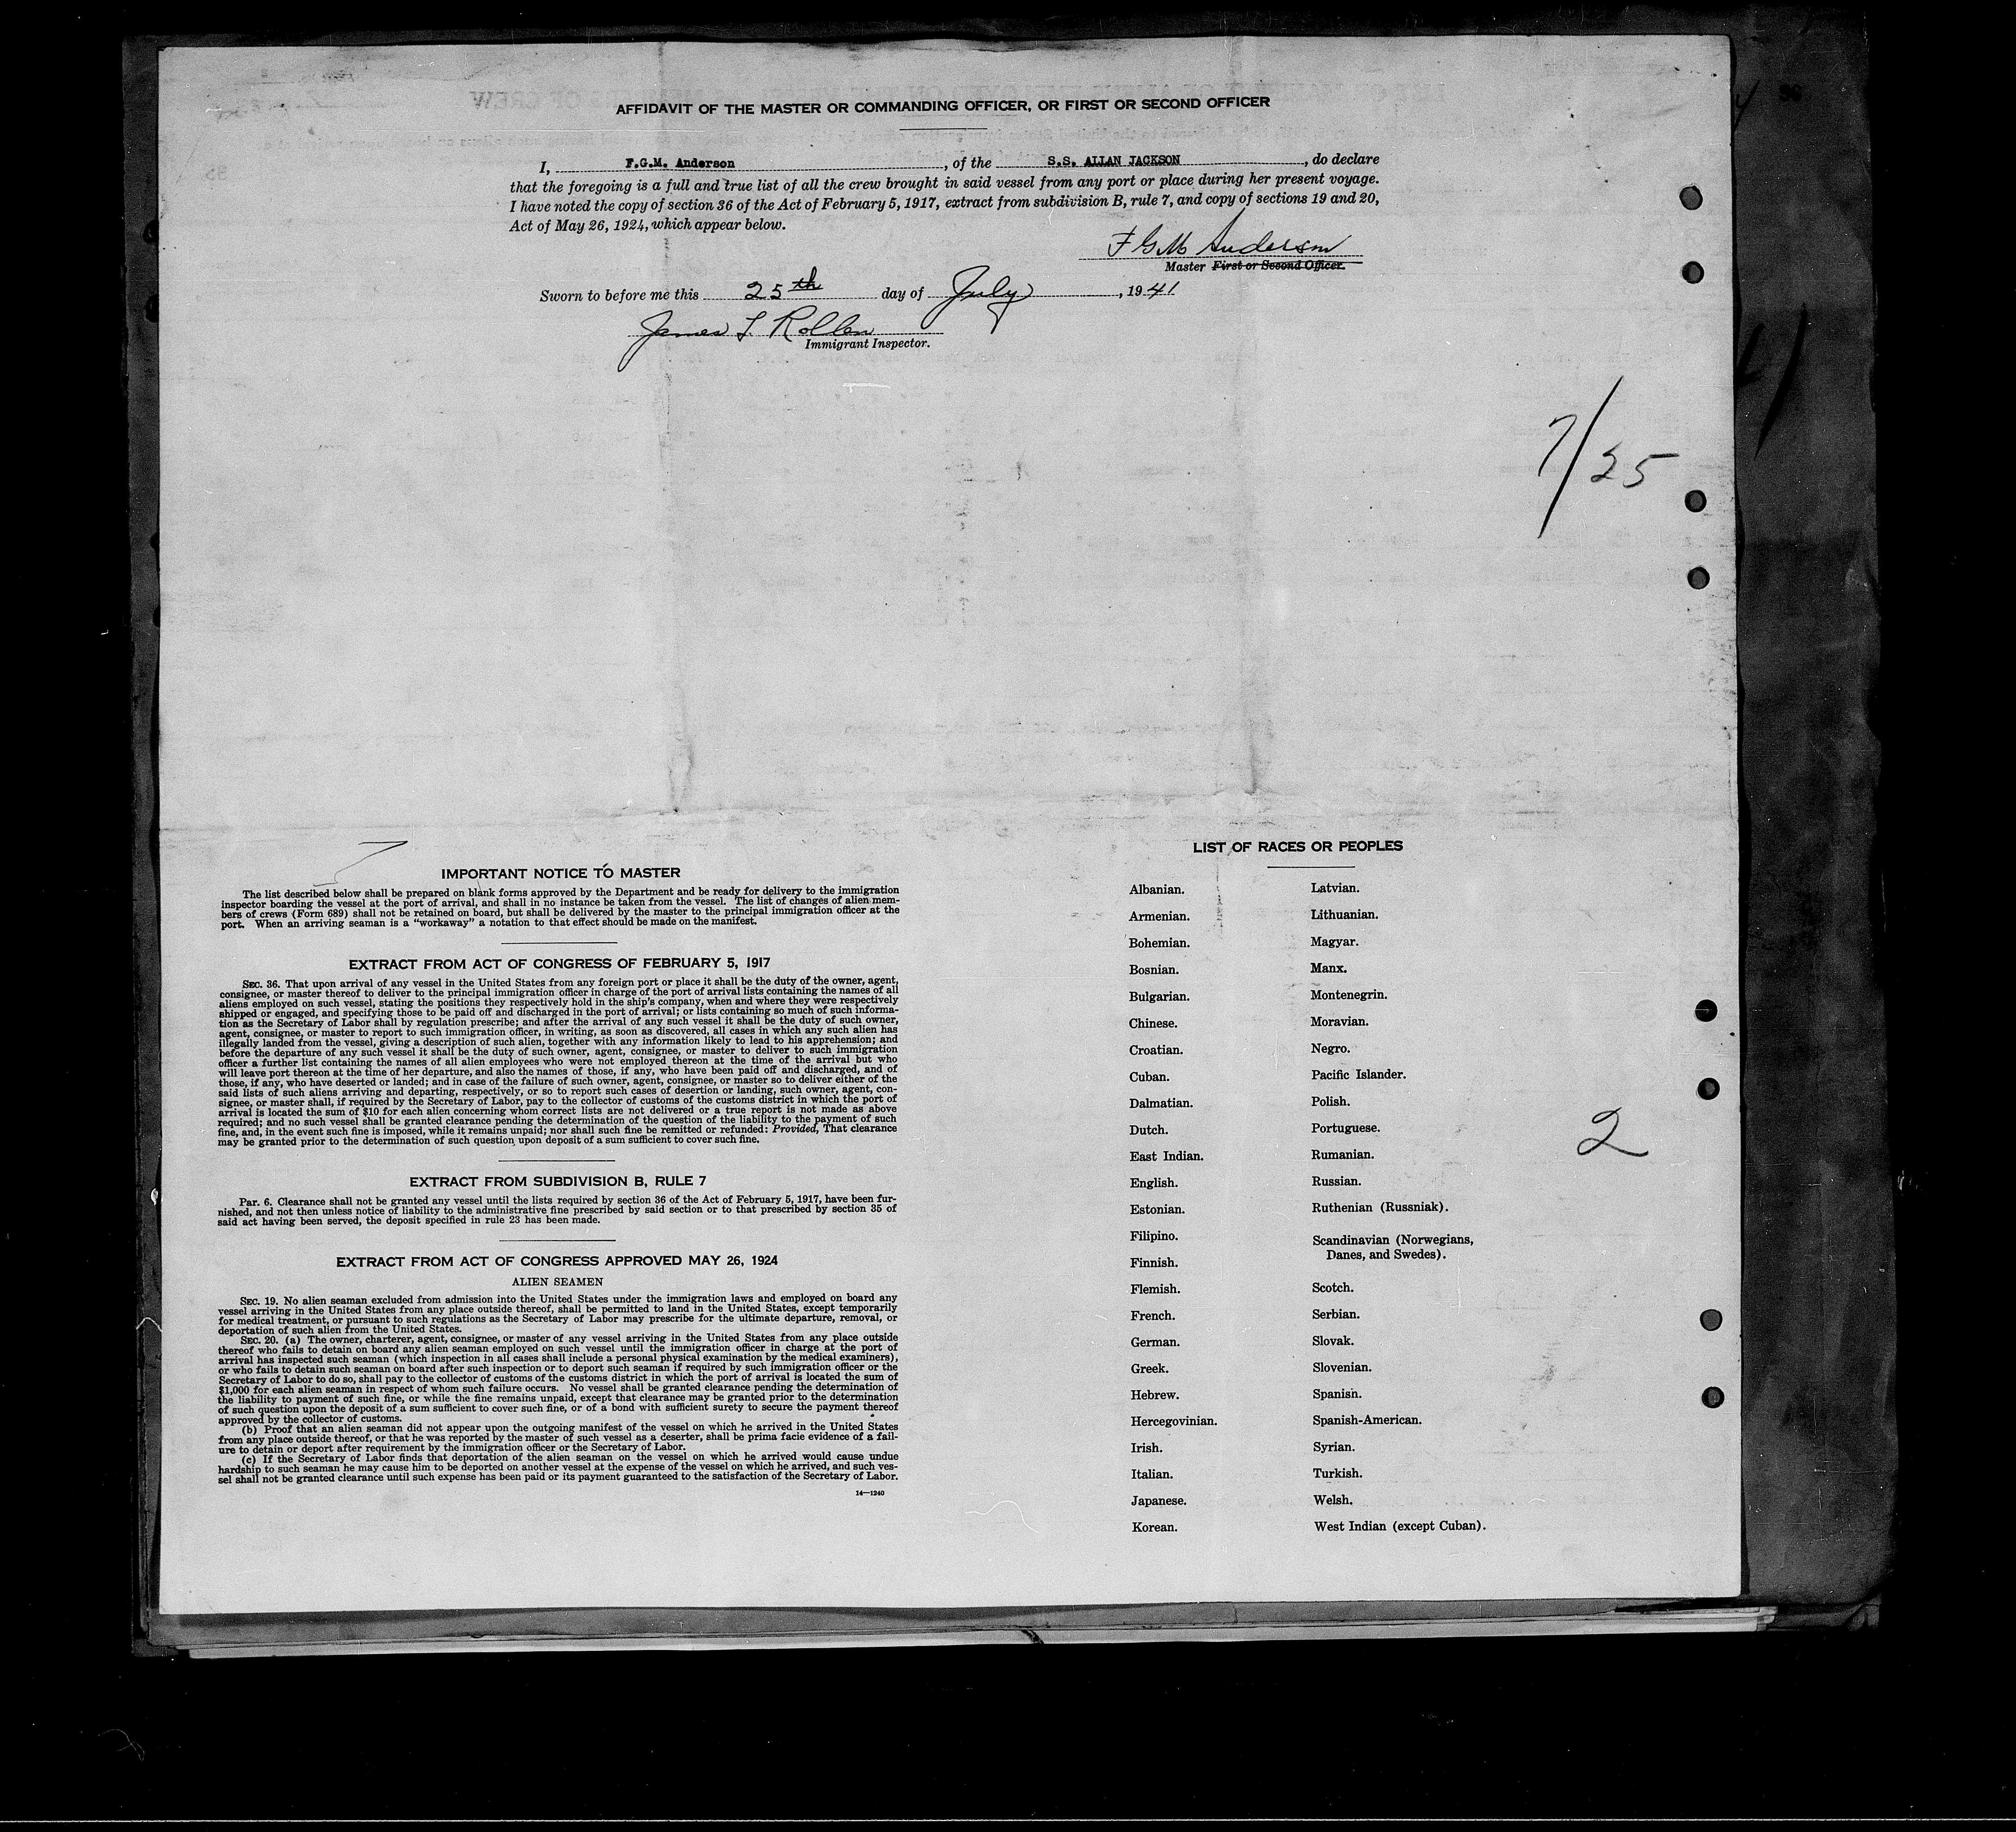 AFFIDAVIT OF THE MASTER OR COMMANDING OFFICER, OR FIRST OR SECOND OFFICER
I, F.G.M. Anderson, of the S.S. ALLAN JACKSON, do declare
that the foregoing is a full and true list of all the crew brought in said vessel from any port or place during her present voyage.
I have noted the copy of section 36 of the Act of February 5, 1917, extract from subdivision B, rule 7, and copy of sections 19 and 20,
Act of May 26, 1924, which appear below.
F G M Anderson
Master First or Second Officer.
Sworn to before me this 25th day of July, 1941
James L. Rollen
Immigrant Inspector.
7/25
IMPORTANT NOTICE TO MASTER
The list described below shall be prepared on blank forms approved by the Department and be ready for delivery to the immigration
inspector boarding the vessel at the port of arrival, and shall in no instance be taken from the vessel. The list of changes of alien mem-
bers of crews (Form 689) shall not be retained on board, but shall be delivered by the master to the principal immigration officer at the
port. When an arriving seaman is a "workaway" a notation to that effect should be made on the manifest.
EXTRACT FROM ACT OF CONGRESS OF FEBRUARY 5, 1917
SEC. 36. That upon arrival of any vessel in the United States from any foreign port or place it shall be the duty of the owner, agent,
consignee, or master thereof to deliver to the principal immigration officer in charge of the port of arrival lists containing the names of all
aliens employed on such vessel, stating the positions they respectively hold in the ship's company, when and where they were respectively
shipped or engaged, and specifying those to be paid off and discharged in the port of arrival; or lists containing so much of such informa-
tion as the Secretary of Labor shall by regulation prescribe; and after the arrival of any such vessel it shall be the duty of such owner,
agent, consignee, or master to report to such immigration officer, in writing, as soon as discovered, all cases in which any such alien has
illegally landed from the vessel, giving a description of such alien, together with any information likely to lead to his apprehension; and
before the departure of any such vessel it shall be the duty of such owner, agent, consignee, or master to deliver to such immigration
officer a further list containing the names of all alien employees who were not employed thereon at the time of the arrival but who
will leave port thereon at the time of her departure, and also the names of those, if any, who have been paid off and discharged, and of
those, if any, who have deserted or landed; and in case of the failure of such owner, agent, consignee, or master so to deliver either of the
said lists of such aliens arriving and departing, respectively, or so to report such cases of desertion or landing, such owner, agent, con-
signee, or master shall, if required by the Secretary of Labor, pay to the collector of customs of the customs district in which the port of
arrival is located the sum of $10 for each alien concerning whom correct lists are not delivered or a true report is not made as above
required; and no such vessel shall be granted clearance pending the determination of the question of the liability to the payment of such
fine, and, in the event such fine is imposed, while it remains unpaid; nor shall such fine be remitted or refunded: Provided, That clearance
may be granted prior to the determination of such question upon deposit of a sum sufficient to cover such fine.
EXTRACT FROM SUBDIVISION B, RULE 7
Par. 6. Clearance shall not be granted any vessel until the lists required by section 36 of the Act of February 5, 1917, have been fur-
nished, and not then unless notice of liability to the administrative fine prescribed by said section or to that prescribed by section 35 of
said act having been served, the deposit specified in rule 23 has been made.
EXTRACT FROM ACT OF CONGRESS APPROVED MAY 26, 1924
ALIEN SEAMEN
SEC. 19. No alien seaman excluded from admission into the United States under the immigration laws and employed on board any
vessel arriving in the United States from any place outside thereof, shall be permitted to land in the United States, except temporarily
for medical treatment, or pursuant to such regulations as the Secretary of Labor may prescribe for the ultimate departure, removal, or
deportation of such alien from the United States.
SEC. 20. (a) The owner, charterer, agent, consignee, or master of any vessel arriving in the United States from any place outside
thereof who fails to detain on board any alien seaman employed on such vessel until the immigration officer in charge at the port of
arrival has inspected such seaman (which inspection in all cases shall include a personal physical examination by the medical examiners),
or who fails to detain such seaman on board after such inspection or to deport such seaman if required by such immigration officer or the
Secretary of Labor to do so, shall pay to the collector of customs of the customs district in which the port of arrival is located the sum of
$1,000 for each alien seaman in respect of whom such failure occurs. No vessel shall be granted clearance pending the determination of
the liability to payment of such fine, or while the fine remains unpaid, except that clearance may be granted prior to the determination
of such question upon the deposit of a sum sufficient to cover such fine, or of a bond with sufficient surety to secure the payment thereof
approved by the collector of customs.
(b) Proof that an alien seaman did not appear upon the outgoing manifest of the vessel on which he arrived in the United States
from any place outside thereof, or that he was reported by the master of such vessel as a deserter, shall be prima facie evidence of a fail-
ure to detain or deport after requirement by the immigration officer or the Secretary of Labor.
(c) If the Secretary of Labor finds that deportation of the alien seaman on the vessel on which he arrived would cause undue
hardship to such seaman he may cause him to be deported on another vessel at the expense of the vessel on which he arrived, and such ves-
sel shall not be granted clearance until such expense has been paid or its payment guaranteed to the satisfaction of the Secretary of Labor.
14—1240
LIST OF RACES OR PEOPLES
Albanian.
Armenian.
Bohemian.
Bosnian.
Bulgarian.
Chinese.
Croatian.
Cuban.
Dalmatian.
Dutch.
East Indian.
English.
Estonian.
Filipino.
Finnish.
Flemish.
French.
German.
Greek.
Hebrew.
Hercegovinian.
Irish.
Italian.
Japanese.
Korean.
Latvian.
Lithuanian.
Magyar.
Manx.
Montenegrin.
Moravian.
Negro.
Pacific Islander.
Polish.
Portuguese.
Rumanian.
Russian.
Ruthenian (Russniak).
Scandinavian (Norwegians,
Danes, and Swedes).
Scotch.
Serbian.
Slovak.
Slovenian.
Spanish.
Spanish-American.
Syrian.
Turkish.
Welsh.
West Indian (except Cuban).
2